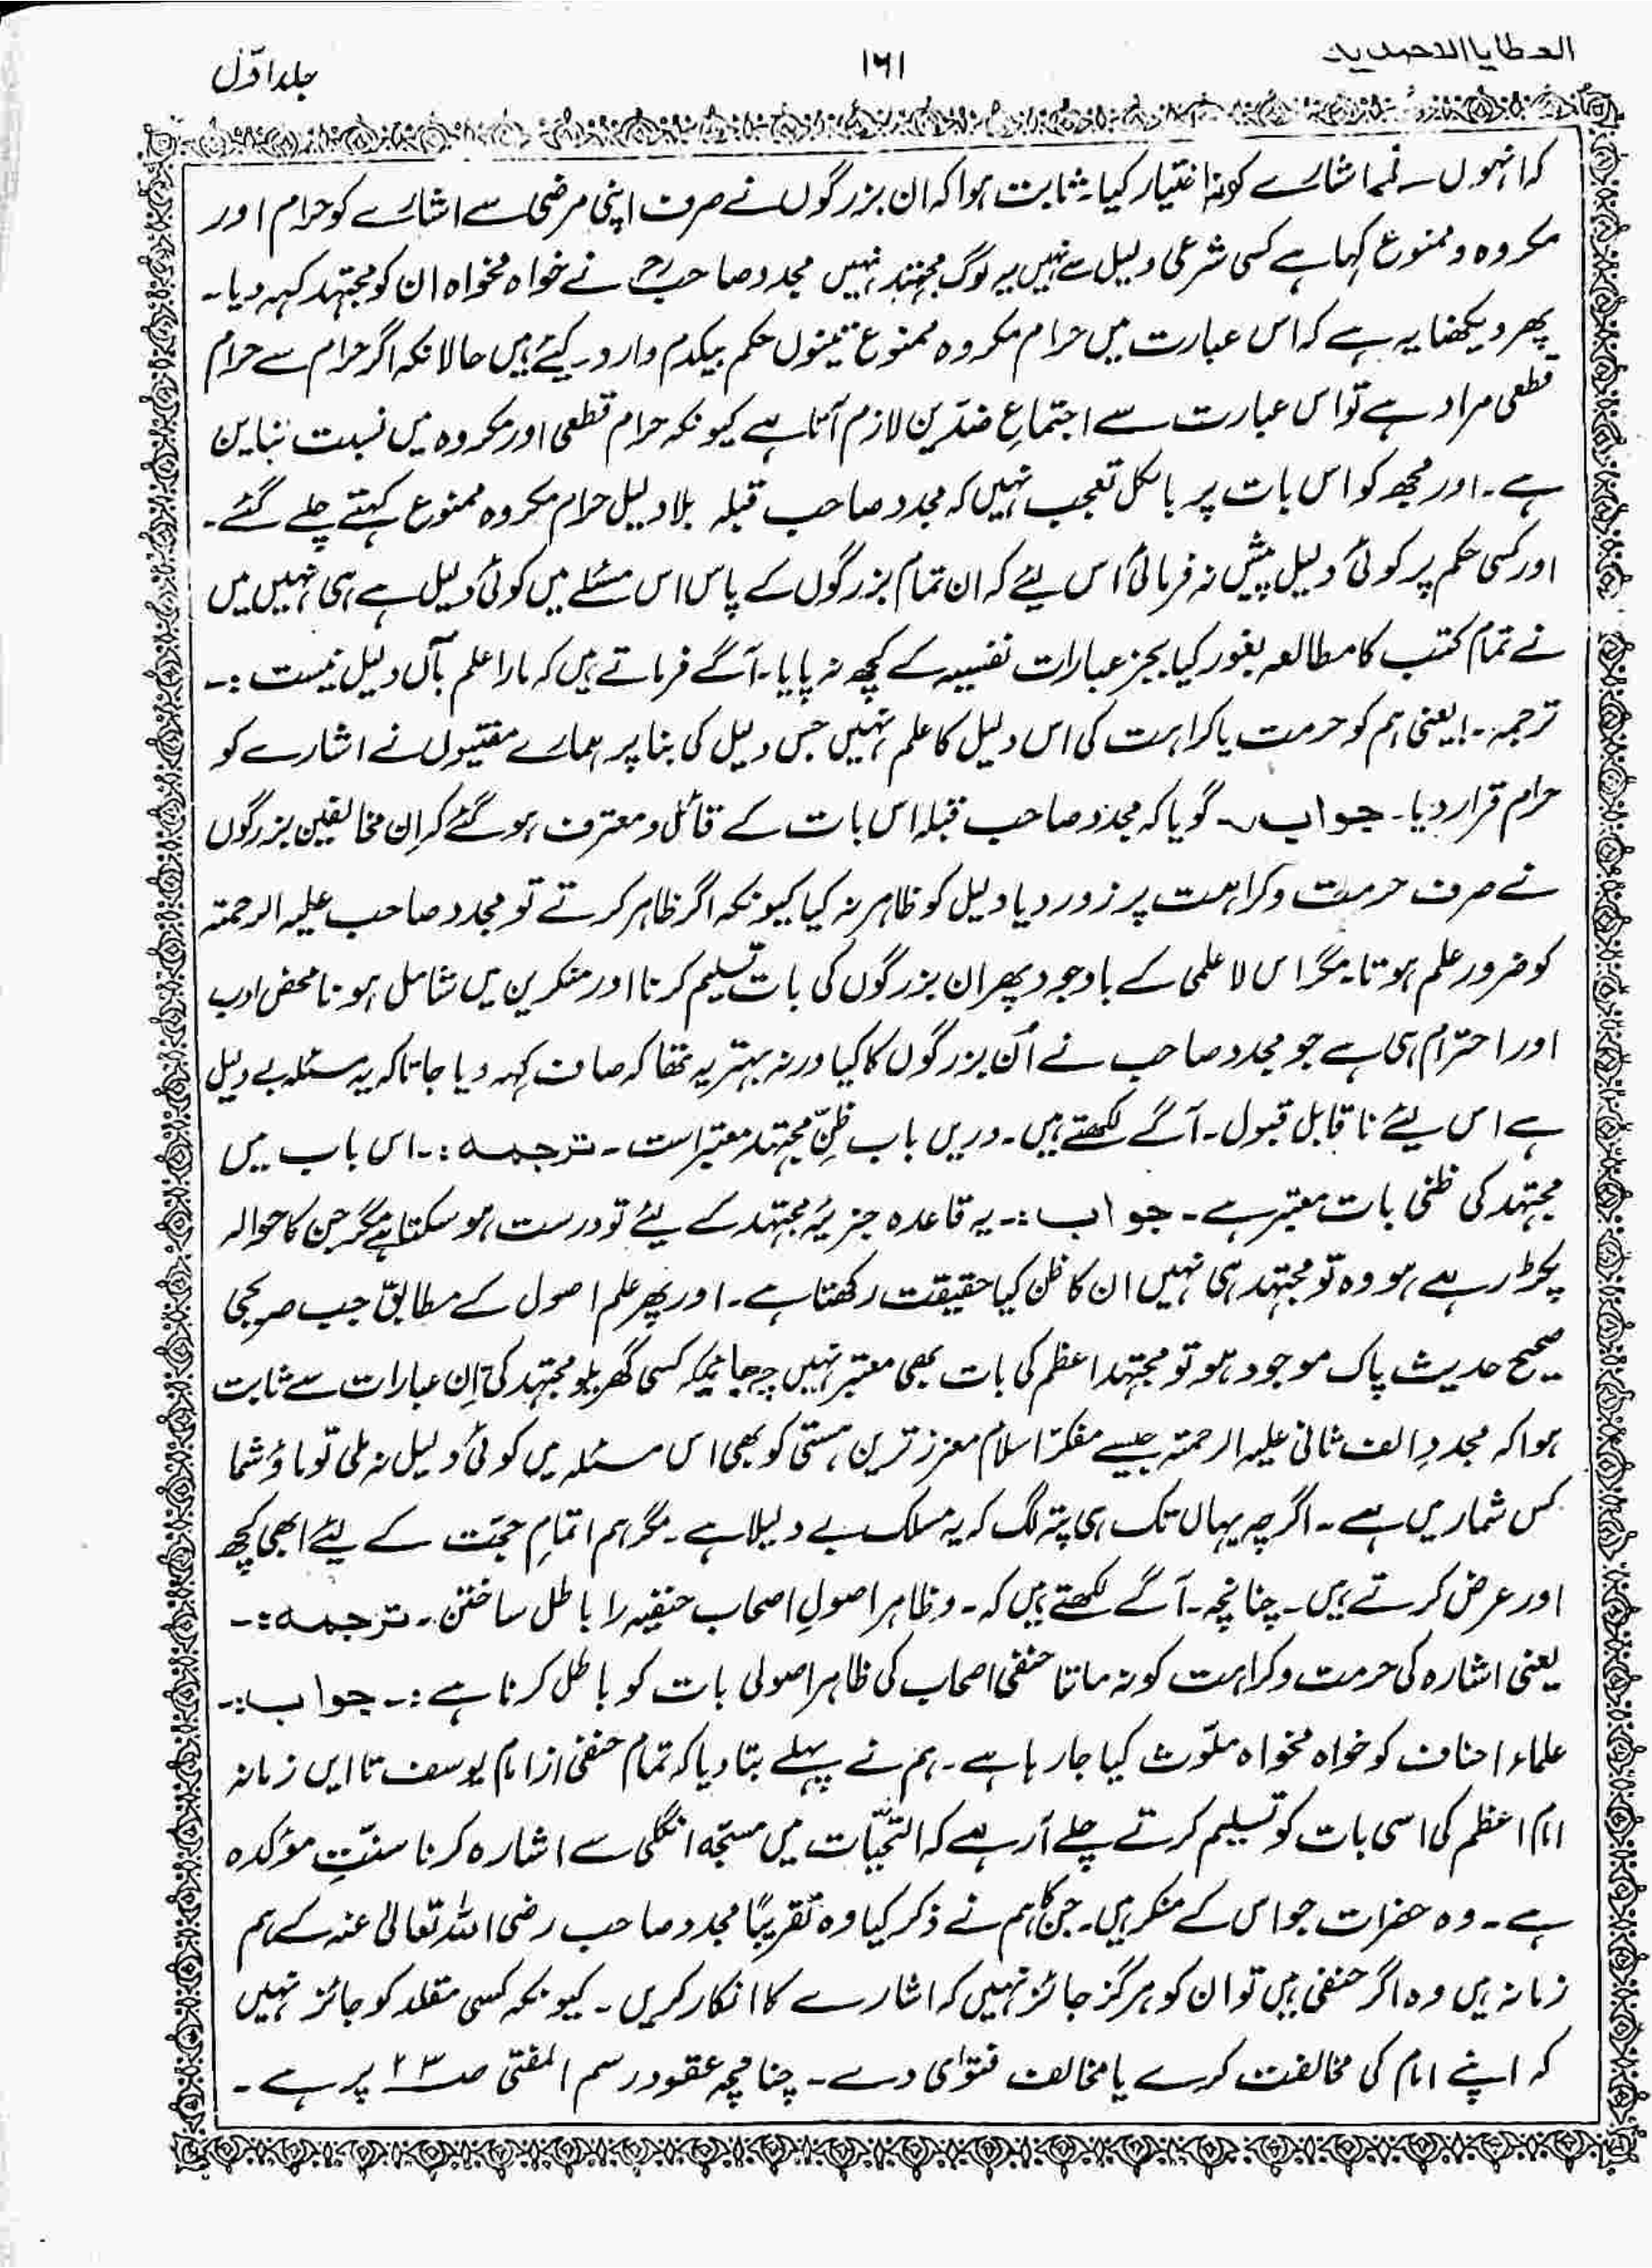 العطایا الاحمدیہ
۱۶۱
جلد اوّل
کہ انہوں نے اشارے کو نہ اختیار کیا۔ ثابت ہوا کہ ان بزرگوں نے صرف اپنی مرضی سے اشارے کو حرام اور
مکروہ و ممنوع کہا ہے کسی شرعی دلیل سے نہیں یہ لوگ مجتہد نہیں مجدد صاحبؒ نے خواہ مخواہ ان کو مجتہد کہہ دیا۔
پھر دیکھنا یہ ہے کہ اس عبارت میں حرام مکروہ ممنوع تینوں حکم یکدم وارد کیئے ہیں حالانکہ اگر حرام سے حرام
قطعی مراد ہے تو اس عبارت سے اجتماعِ ضدّین لازم آتا ہے کیونکہ حرام قطعی اور مکروہ میں نسبت تباین
ہے۔ اور مجھ کو اس بات پر بالکل تعجب نہیں کہ مجدد صاحب قبلہ بلا دلیل حرام مکروہ ممنوع کہتے چلے گئے۔
اور کسی حکم پر کوئی دلیل پیش نہ فرمائی اس لیئے کہ ان تمام بزرگوں کے پاس اس مسئلے میں کوئی دلیل ہے ہی نہیں میں
نے تمام کتب کا مطالعہ بغور کیا بجز عبارات نفسیہ کے کچھ نہ پایا۔ آگے فرماتے ہیں کہ مارا علم بآں دلیل نیست :۔
ترجمہ۔ یعنی ہم کو حرمت یا کراہت کی اس دلیل کا علم نہیں جس دلیل کی بنا پر ہمارے مفتیوں نے اشارے کو
حرام قرار دیا۔ جواب۔ گویا کہ مجدد صاحب قبلہ اس بات کے قائل و معترف ہو گئے کہ اِن مخالفین بزرگوں
نے صرف حرمت و کراہت پر زور دیا دلیل کو ظاہر نہ کیا کیونکہ اگر ظاہر کرتے تو مجدد صاحب علیہ الرحمتہ
کو ضرور علم ہوتا۔ مگر اس لاعلمی کے باوجود پھر ان بزرگوں کی بات تسلیم کرنا اور منکرین میں شامل ہونا محض ادب
اور احترام ہی ہے جو مجدد صاحب نے اُن بزرگوں کا کیا ورنہ بہتر یہ تھا کہ صاف کہہ دیا جاتا کہ یہ مسئلہ بے دلیل
ہے اس لیئے ناقابل قبول۔ آگے لکھتے ہیں۔ دریں باب ظنِّ مجتہد معتبر است۔ ترجمہ :۔ اس باب میں
مجتہد کی ظنی بات معتبر ہے۔ جواب :۔ یہ قاعدہ جزیۂ مجتہد کے لیئے تو درست ہو سکتا ہے مگر جن کا حوالہ
پکڑ رہے ہو وہ تو مجتہد ہی نہیں ان کا ظن کیا حقیقت رکھتا ہے۔ اور پھر علم اصول کے مطابق جب صریحی
صحیح حدیث پاک موجود ہو تو مجتہد اعظم کی بات بھی معتبر نہیں چہ جائیکہ کسی گھریلو مجتہد کی اِن عبارات سے ثابت
ہوا کہ مجددِ الف ثانی علیہ الرحمتہ جیسے مفکر اسلام معزز ترین ہستی کو بھی اس مسئلہ میں کوئی دلیل نہ ملی تو ماؤشما
کس شمار میں ہے۔ اگرچہ یہاں تک ہی پتہ لگ کہ یہ مسلک بے دلیلا ہے۔ مگر ہم اتمامِ حجّت کے لیئے ابھی کچھ
اور عرض کرتے ہیں۔ چنانچہ۔ آگے لکھتے ہیں کہ۔ و ظاہر اصولِ اصحاب حنفیہ را باطل ساختن۔ ترجمہ :۔
یعنی اشارہ کی حرمت و کراہت کو نہ ماننا حنفی اصحاب کی ظاہر اصولی بات کو باطل کرنا ہے :۔ جواب :۔
علماء احناف کو خواہ مخواہ ملوّث کیا جا رہا ہے۔ ہم نے پہلے بتا دیا کہ تمام حنفی از امام یوسف تا ایں زمانہ
امام اعظم کی اسی بات کو تسلیم کرتے چلے آرہے کہ التحیّات میں مسبّحہ انگلی سے اشارہ کرنا سنّتِ مؤکدہ
ہے۔ وہ حضرات جو اس کے منکر ہیں۔ جن کا ہم نے ذکر کیا وہ تقریباً مجدد صاحب رضی اللہ تعالیٰ عنہ کے ہم
زمانہ ہیں وہ اگر حنفی ہیں تو ان کو ہرگز جائز نہیں کہ اشارے کا انکار کریں۔ کیونکہ کسی مقلد کو جائز نہیں
کہ اپنے امام کی مخالفت کرے یا مخالف فتوٰی دے۔ چنانچہ عقود رسم المفتی صـ ۲۳ پر ہے۔